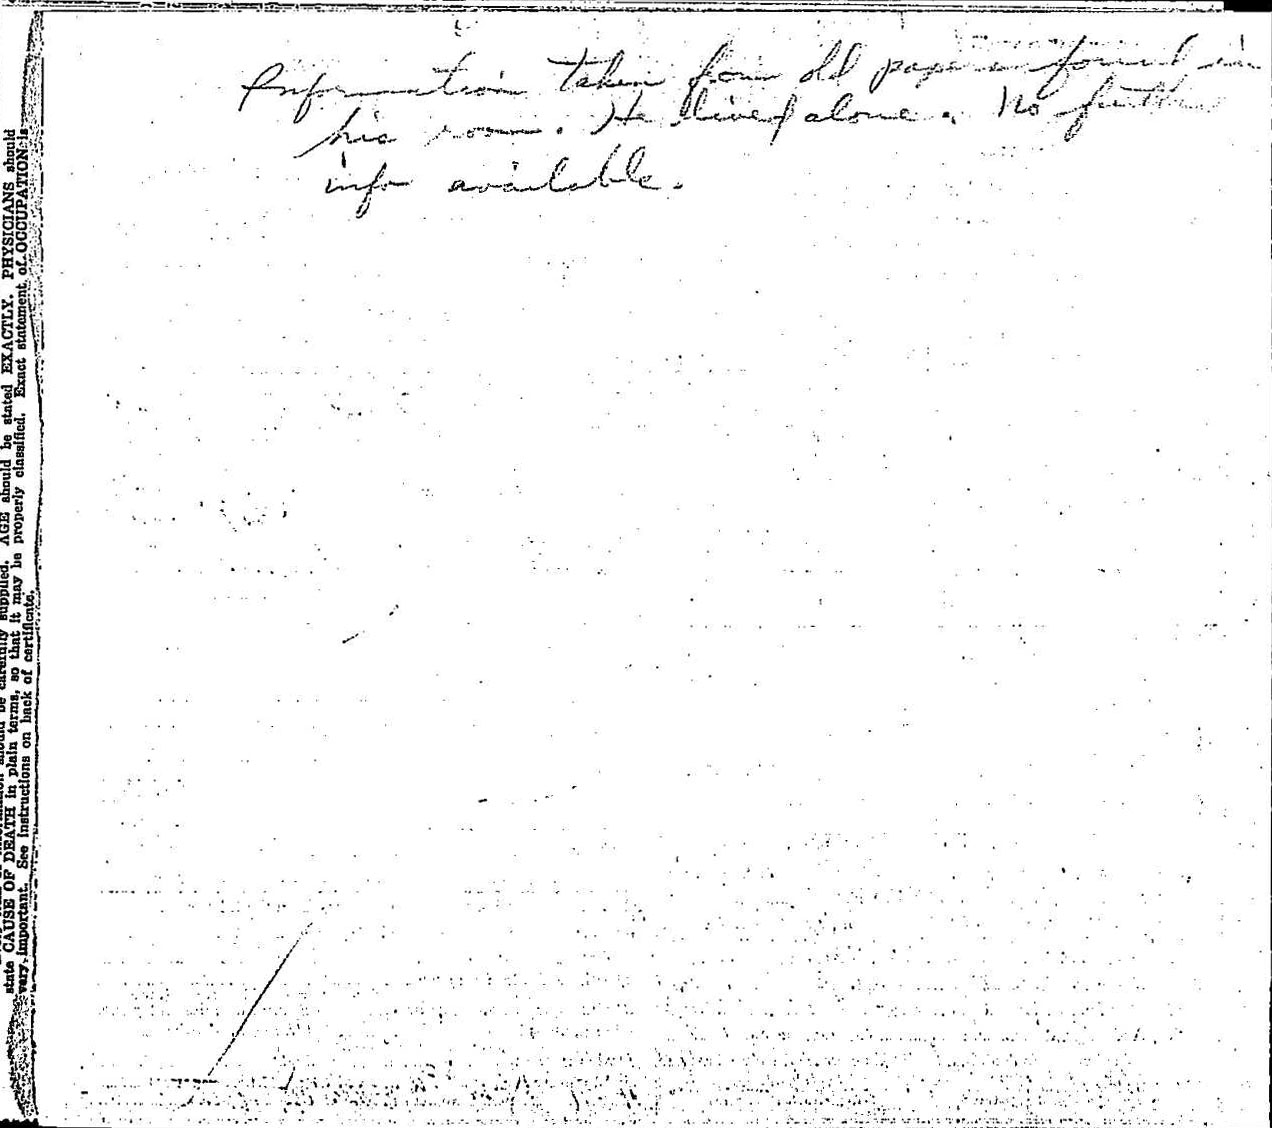 Information taken from old papers found in
his room. He lived alone. No further
info available.
should be carefully supplied. AGE should be stated EXACTLY. PHYSICIANS should
state CAUSE OF DEATH in plain terms, so that it may be properly classified. Exact statement of OCCUPATION is
very important. See instructions on back of certificate.